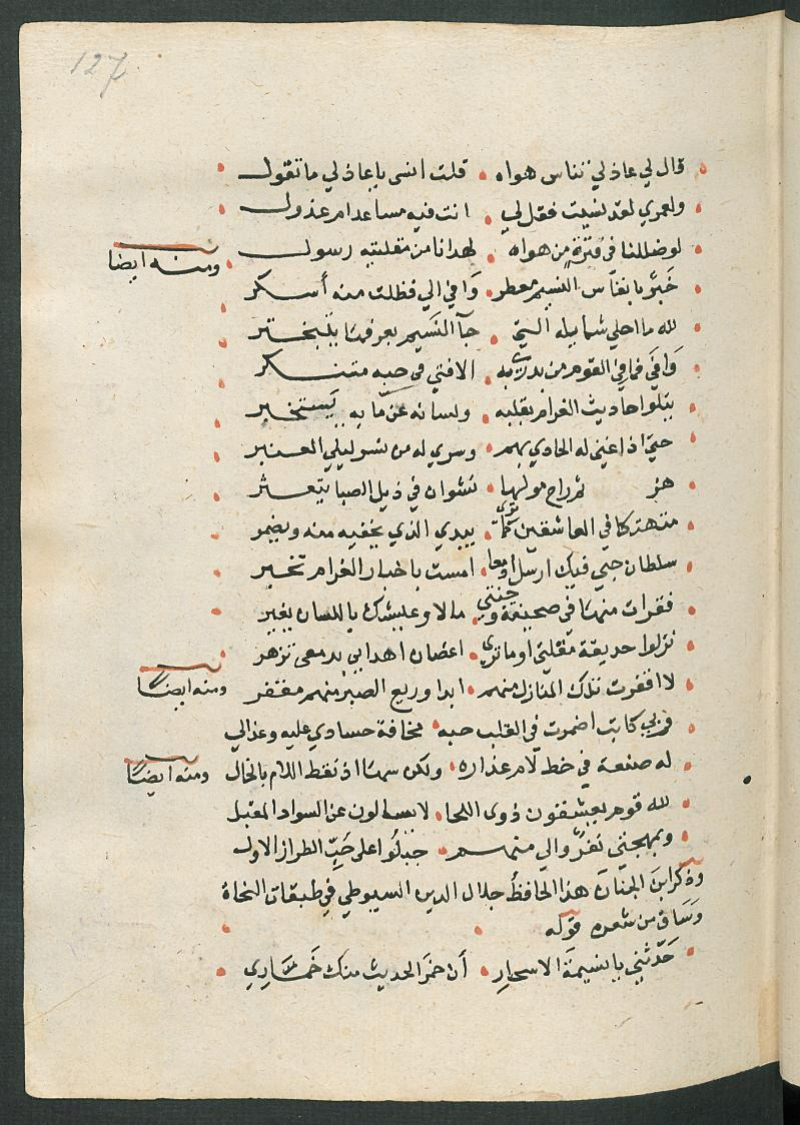 127
قال لي عاذلي تناس هواه ۰ قلت انسى يا عاذلي ما تقول
ولعمري لقد نسيت فقل لي ۰ انت فيه مساعد ام عذول
لو ضللنا في فترة من هواه ۰ لهدانا من مقلتيه رسول
ومنه ايضا
خبر بانفاس النسيم معطر ۰ وافي الي فظلت منه أسكر
لله ما احلي شمايله التي ۰ جآ النسيم بعرفها يتبختر
وافي فما في القوم من يدري به ۰ الا فتي في حبه متنكر
يتلوا حاديث الغرام بقلبه ۰ ولسانه عن ما به يستخبر
حتي اذا غني له الحادي بهم ۰ وسري له من نشر ليلي العنبر
هز راح مولها ۰ نشوان في ذيل الصبا يتعثر
متهتكا في العاشقين تري ۰ يبدي الذي يخفيه منه ويضمر
سلطان حبي فيك ارسل ادمعا ۰ امست باخبار الغرام تخبر
فقرات منها في صحيفة وجنتي ۰ مالا وعيشك باللسان يغير
نزلوا حديقة مقلتي اوما تري ۰ اغصان اهدابي بدمعي تزهر
لا اقفرت تلك المنازل منهم ۰ ابدا وربع الصبر منهم مقفر
ومنه ايضا
وبي كاتب اضمرت في القلب حبه ۰ مخافة حسادي عليه وعذالي
له صنعة في خط لام عذاره ۰ ولكن سها اذ نقط اللام بالخال
ومنه ايضا
لله قوم يعشقون ذوي اللحا ۰ لا يسالون عن السواد المقبل
وبمهجتي نفر والي منهم ۰ جبلوا على حب الطراز الاول
وذكر ابن الجنان هذا الحافظ جلال الدين السيوطي في طبقات النحاة
وساق من شعره قوله
حدثني يا نسيمة الاسحار ۰ أن خمر الحديث منك خماري